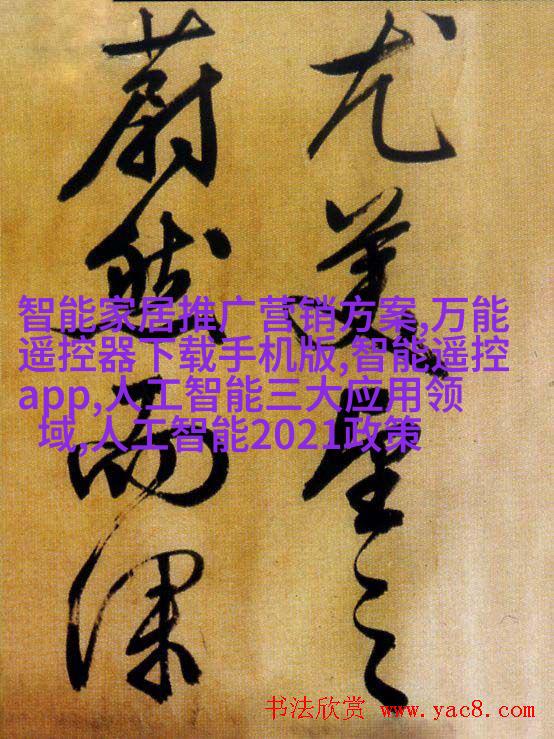 尤美望之
蔚然而深
智能家居推广营销方案,万能
遥控器下载手机版,智能遥控
app,人工智能三大应用领
域,人工智能2021政策
书法欣赏 www.yac8.com